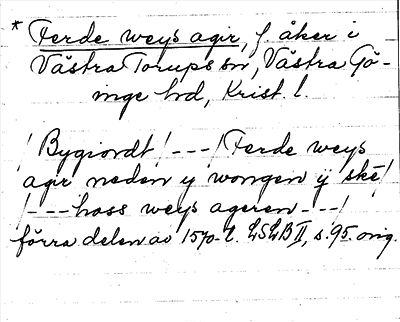 * Ferde weys agir, f. åker i
Västra Torups sn, Västra Gö-
inge hd, Krist. l.
/Bygiordt/---/Ferde weys
agir neden y wongen ÿ skē/
/---hoss weys ageren---/
förra delen av 1570-t. LSLB II, s. 95. orig.